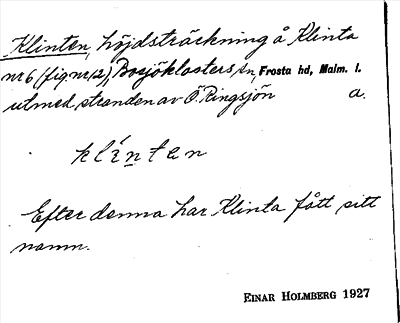 Klinten, höjdsträckning å Klinta
nr 6 (fig. nr 12), Bosjöklosters sn, Frosta hd, Malm. l.
utmed stranden av Ö. Ringsjön a.
klínten
Efter denna har Klinta fått sitt
namn.
EINAR HOLMBERG 1927